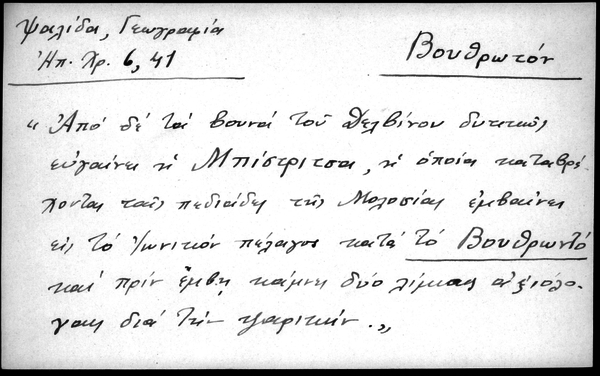 Ψαλίδα, Γεωγραφία
Ἠπ. Χρ. 6, 41
Βουθρωτόν
"Ἀπό δέ τά βουνά τοῦ Δελβίνου δυτικῶς
εὐγαίνει ἡ Μπίστριτσα, ἡ ὁποία καταβρέ-
χοντας ταῖς πεδιάδες τῆς Μολοσίας ἐμβαίνει
εἰς τό Ἰωνικόν πέλαγος κατά τό Βουθρωντό
καί πρίν ἔμβῃ κάμνει δύο λίμνας ἀξιολό-
γους διά τήν ψαρικήν."